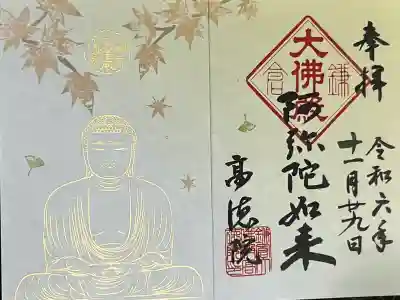 奉拝
令和六年
十一月廿九日
大佛殿
鎌倉
阿弥陀如来
高徳院